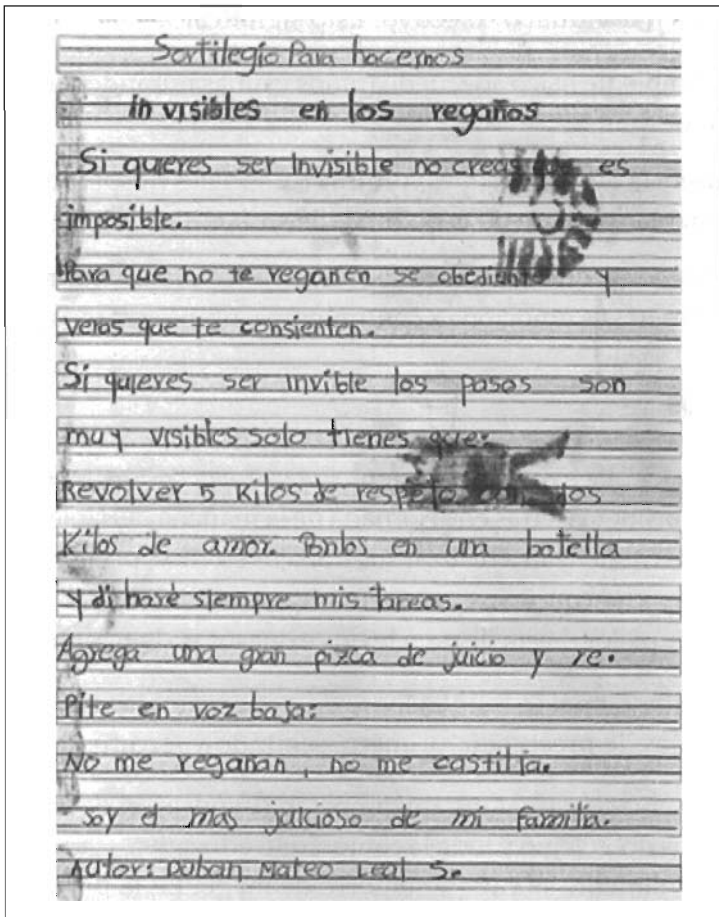 Sortilegio Para hacernos
in visibles en los regaños
Si quieres ser Invisible no creas que es
imposible.
Para que no te regañen se obediente y
veras que te consienten.
Si quieres ser invible los pasos son
muy visibles solo tienes que:
Revolver 5 Kilos de respeto con dos
Kilos de amor. Ponlos en una botella
y di haré siempre mis tareas.
Agrega una gran pizca de juicio y re.
Pite en voz baja:
No me regañan, no me castilla.
soy el mas juicioso de mi familia.
Autor: Duban Mateo Leal S.